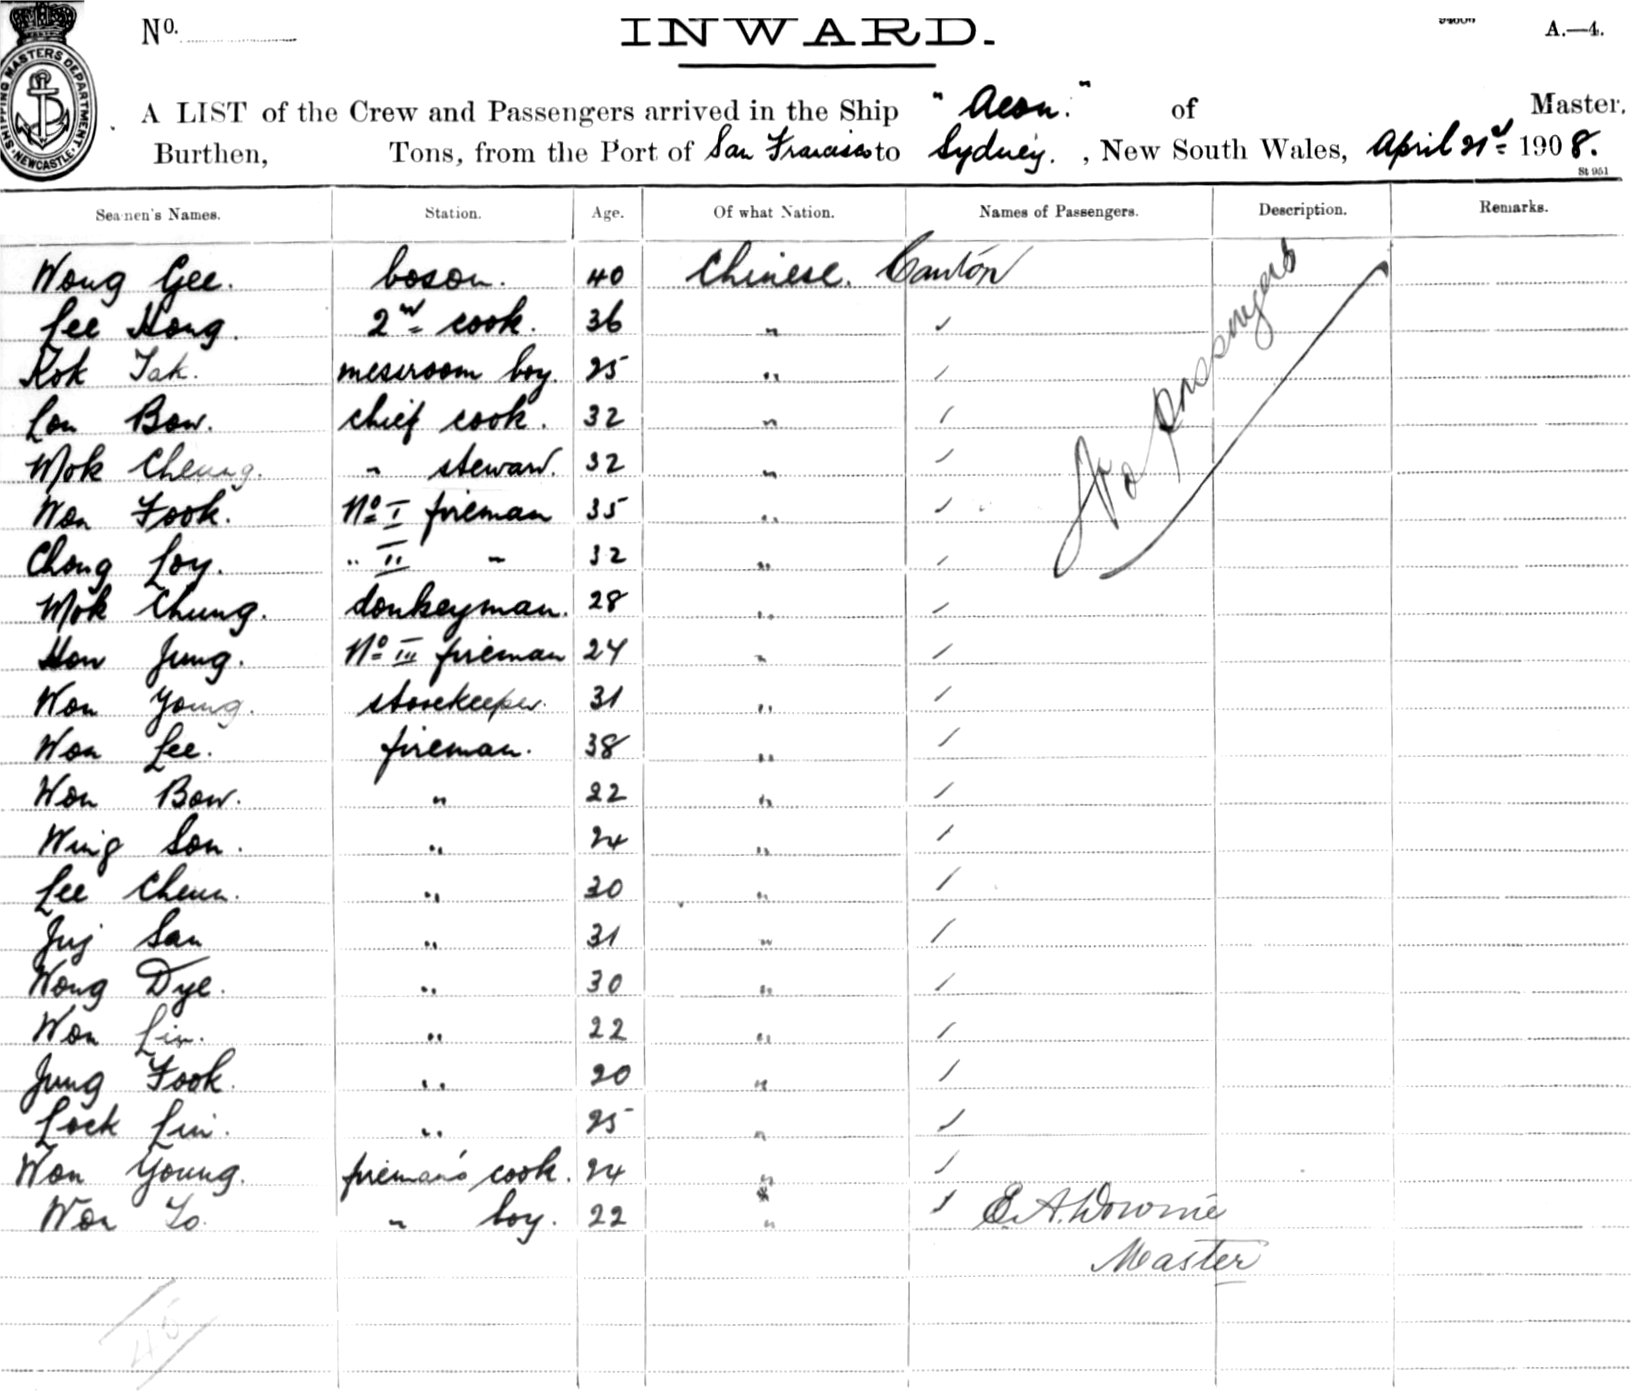 No.
INWARD.
A.—4.
SHIPPING MASTERS DEPARTMENT
NEWCASTLE
A LIST of the Crew and Passengers arrived in the Ship "Aeon." of Master,
Burthen, Tons, from the Port of San Francisco to Sydney. , New South Wales, April 21st 1908.
St 951
Seamen's Names. Station. Age. Of what Nation. Names of Passengers. Description. Remarks.
Wong Gee. boson. 40 Chinese. Canton
Lee Hong. 2nd cook. 36 "
Kok Tak. messroom boy. 25 "
Lon Bow. chief cook. 32 "
Mok Cheung. " steward. 32 "
Won Fook. No I fireman 35 "
Chong Loy. " II " 32 "
Mok Chung. donkeyman. 28 "
Hon Jung. No III fireman 24 "
Won Young. storekeeper. 31 "
Won Lee. fireman. 38 "
Won Bow. " 22 "
Wing Son. " 24 "
Lee Cheun. " 30 "
Juj San " 31 "
Wong Dye. " 30 "
Won Lin. " 22 "
Jung Fook. " 20 "
Lock Lin. " 25 "
Won Young. fireman's cook. 24 "
Won Yo. " boy. 22 "
No passengers
E. A. Downie
Master